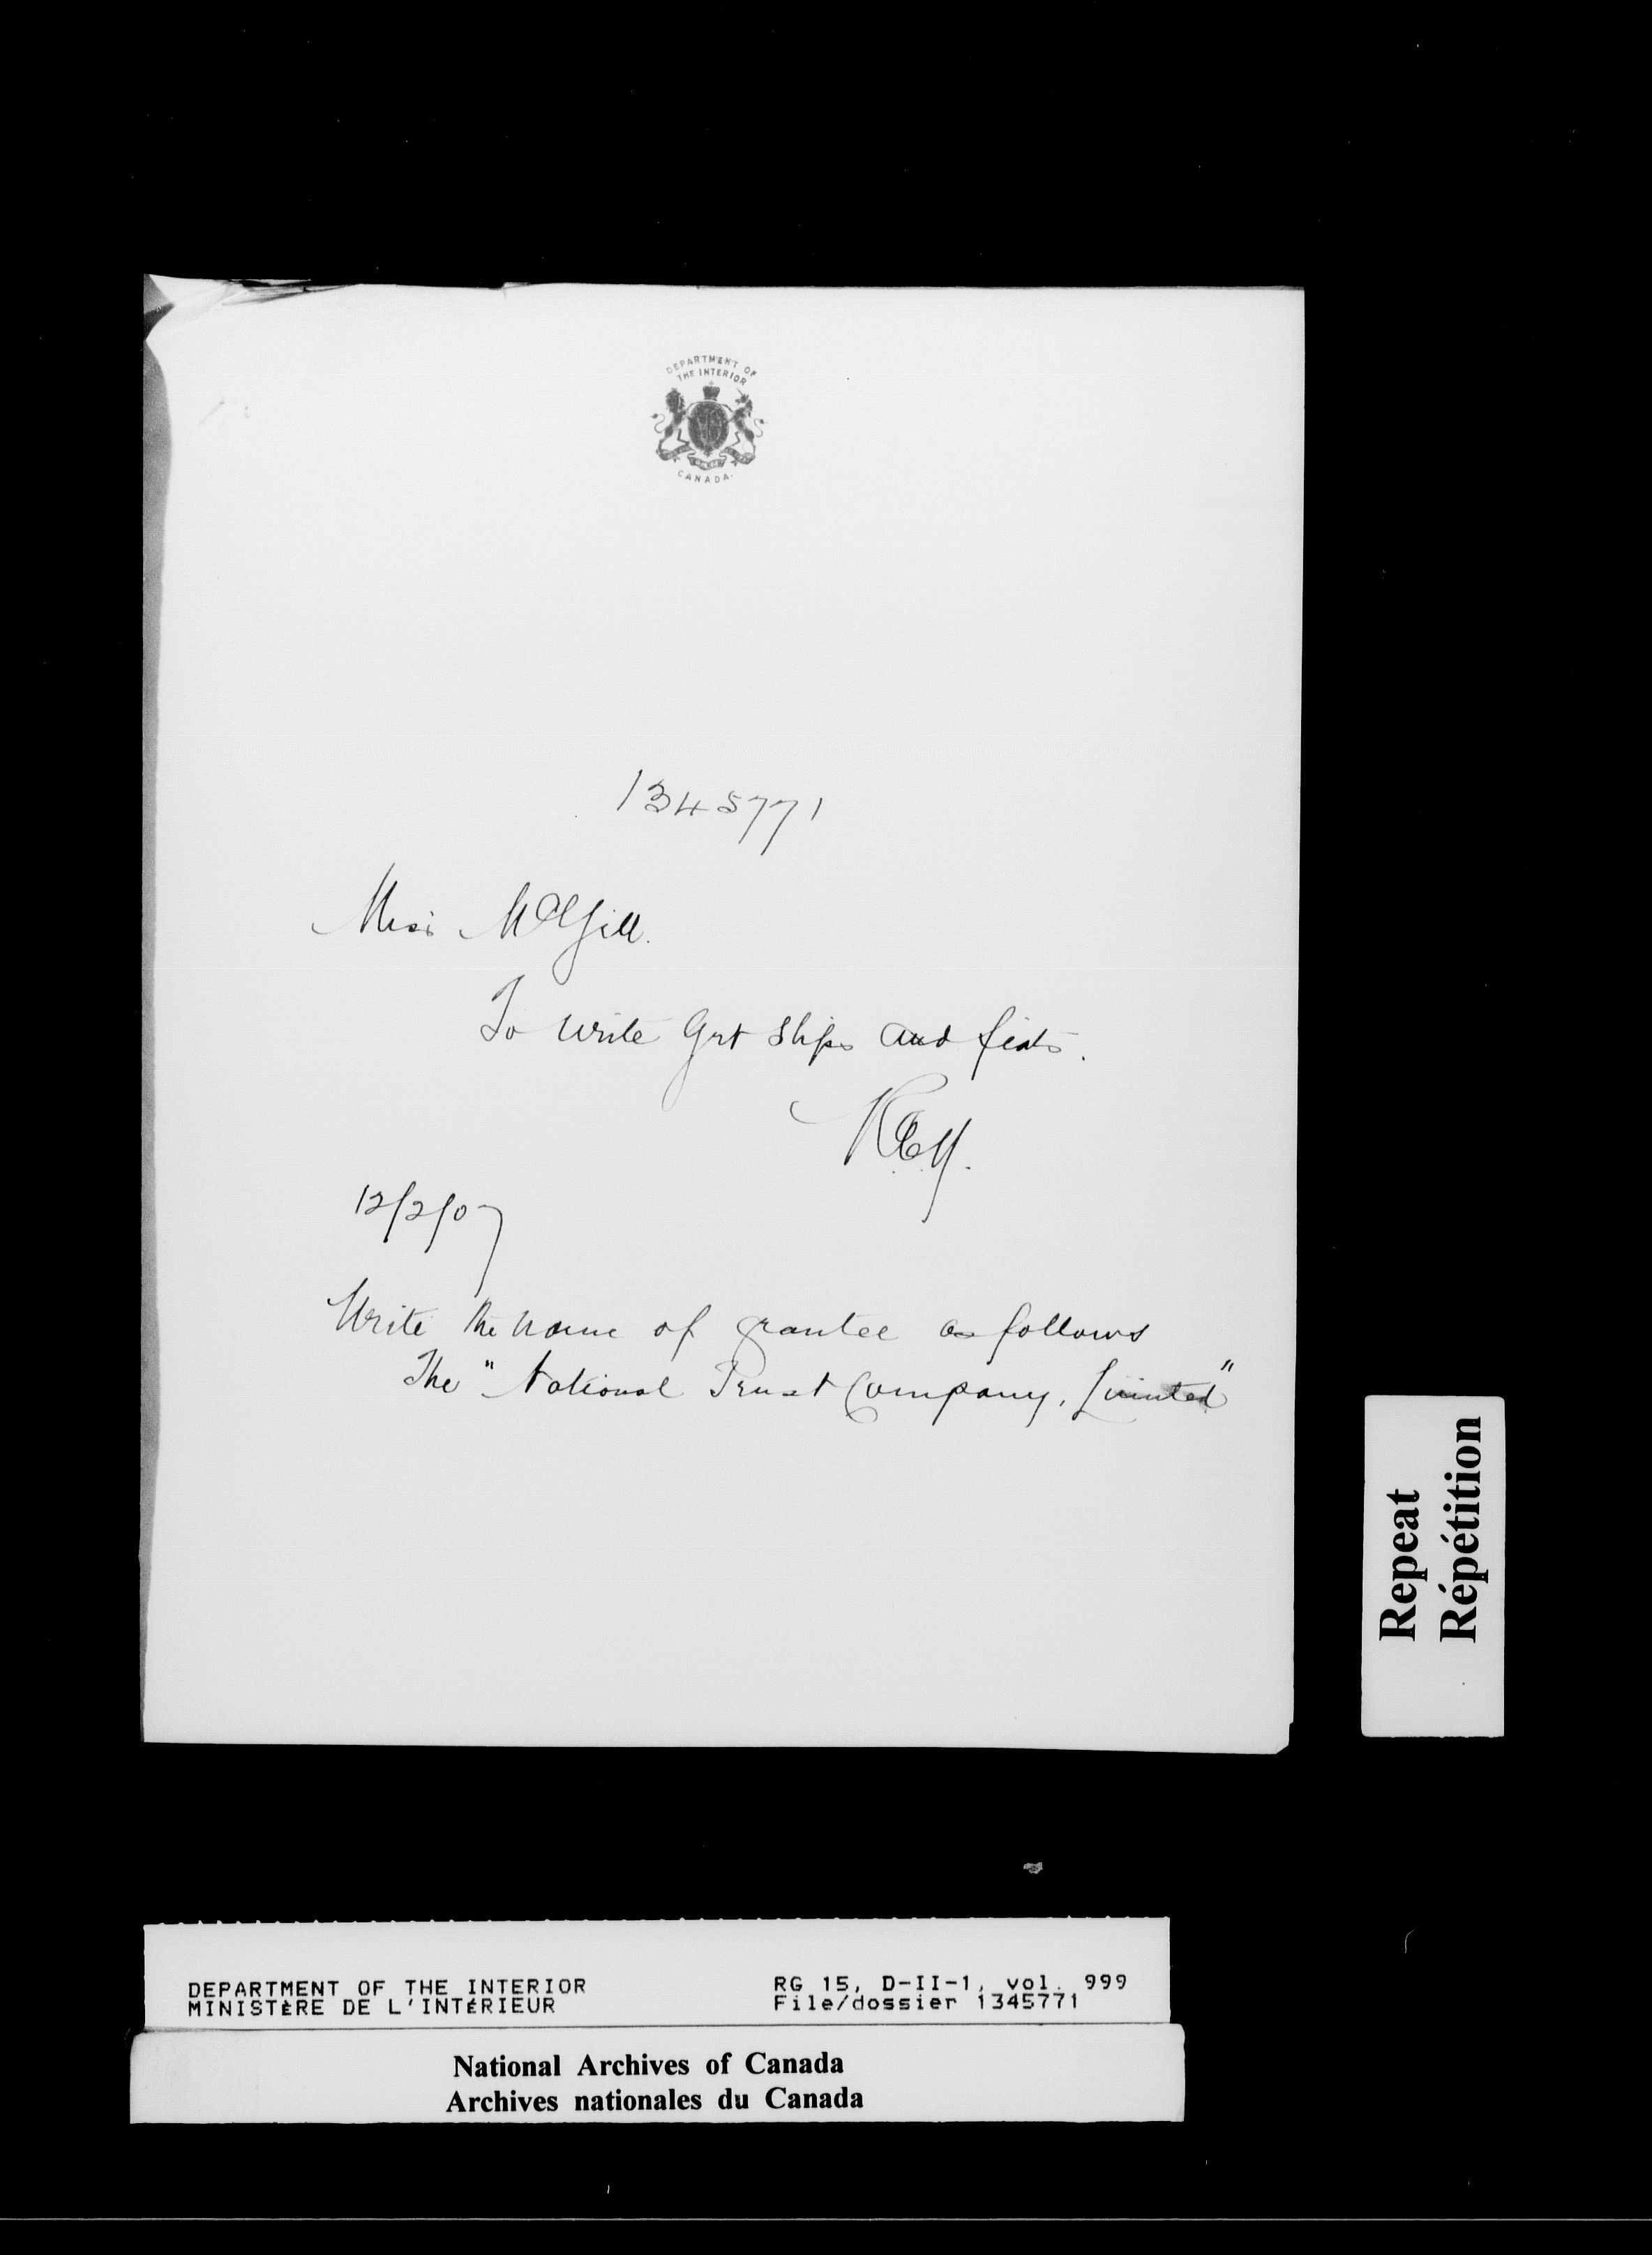 DEPARTMENT OF
THE INTERIOR
CANADA.
1345771
Miss McGill.
To write Grt slips and fiats.
12/2/07
Write the name of grantee as follows
The "National Trust Company, Limited"
Repeat
Répétition
DEPARTMENT OF THE INTERIOR RG 15, D-II-1, vol. 999
MINISTÈRE DE L'INTÉRIEUR File/dossier 1345771
National Archives of Canada
Archives nationales du Canada